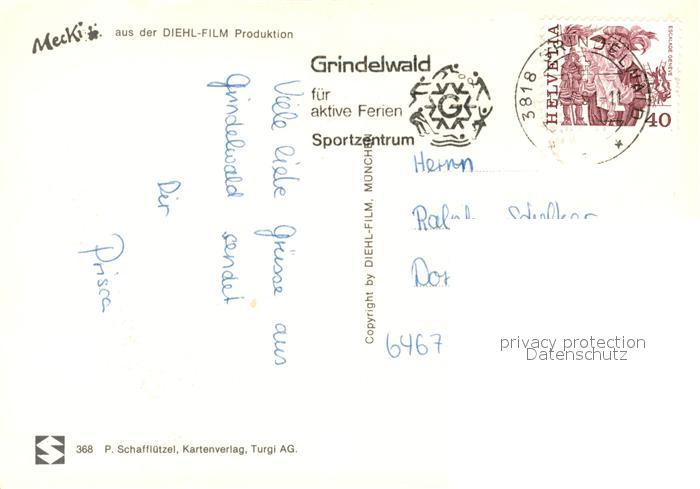 Mecki aus der DIEHL-FILM Produktion
Grindelwald
für
aktive Ferien
Sportzentrum
G
3818 GRINDELWALD
HELVETIA
ESCALADE GENÈVE
40
Viele liebe Grüsse aus
Grindelwald sendet
Dir
Prisca
Copyright by DIEHL-FILM, MÜNCHEN
Herrn
Ralph
6467
privacy protection
Datenschutz
368 P. Schafflützel, Kartenverlag, Turgi AG.